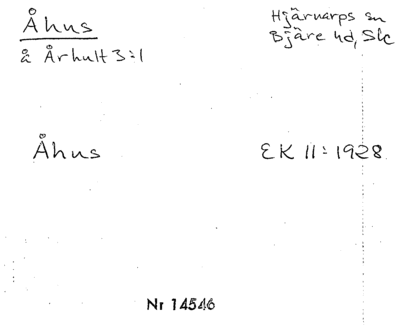 Åhus
Hjärnarps sn
å Århult 3:1
Bjäre hd, Sk
Åhus
EK II: 1928
Nr 14546